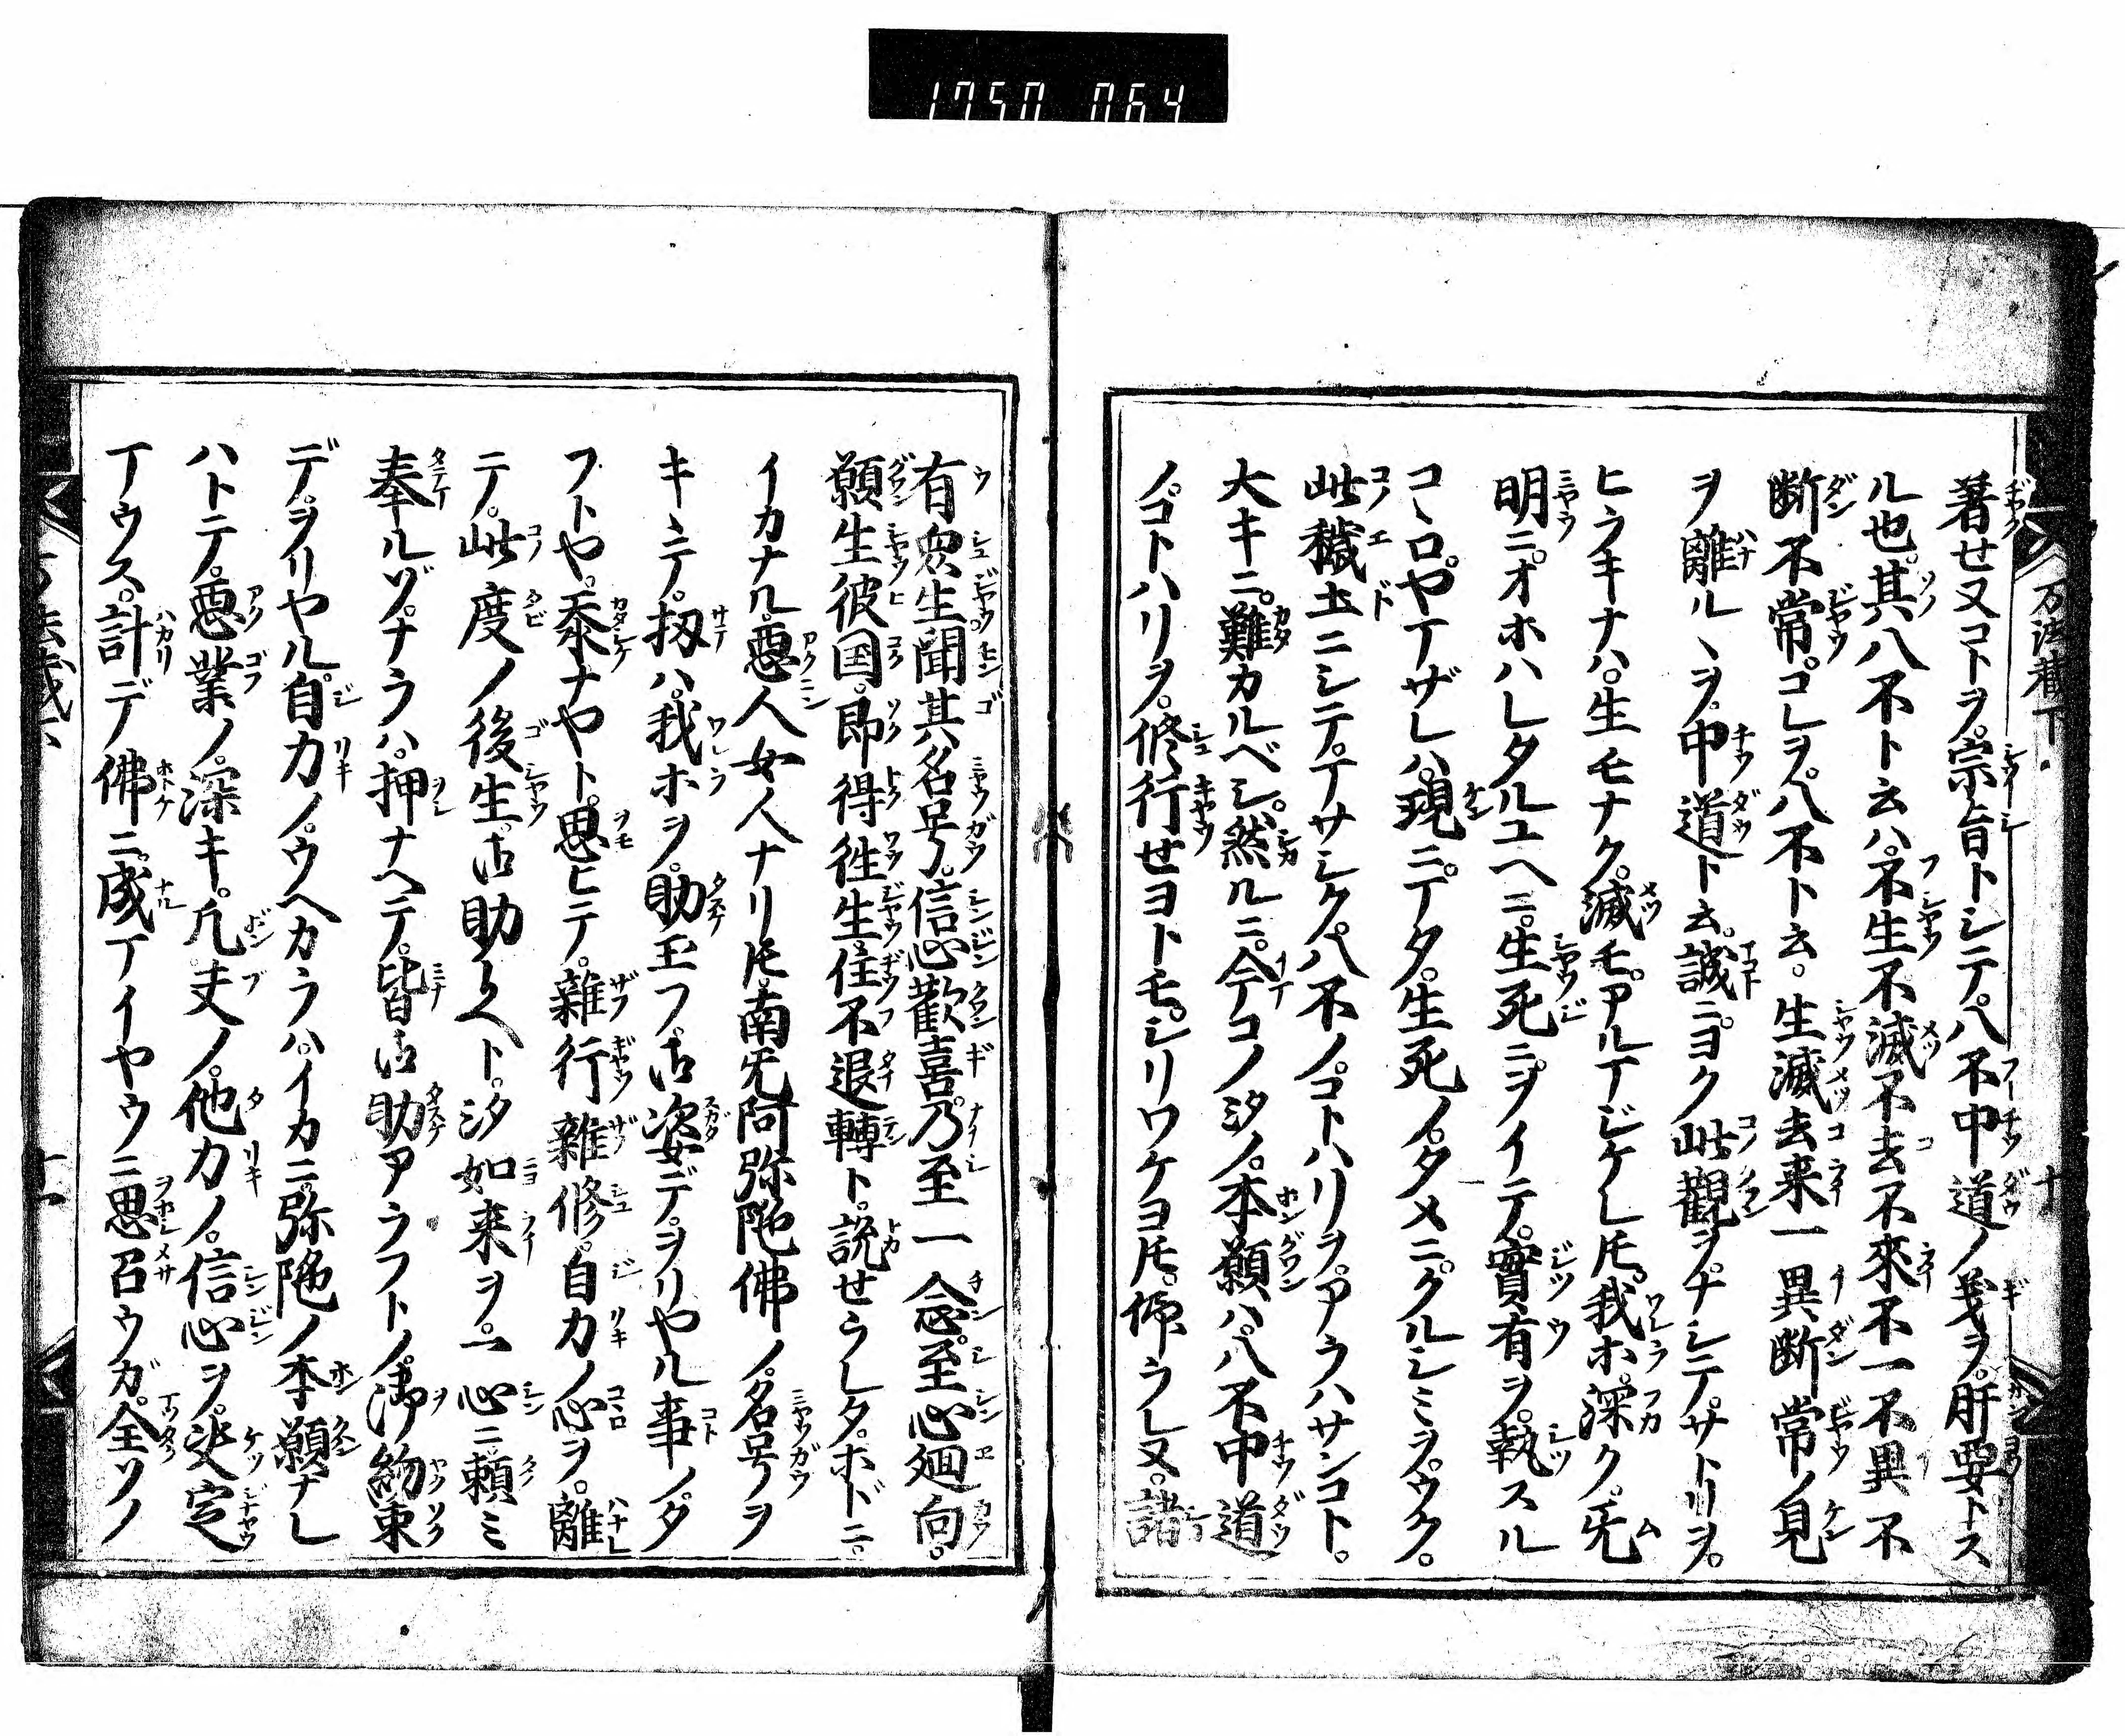 1750 064
著せ又コトヲ。宗旨トシテ。八不中道ノ義ヲ。肝要トス
ル也。其八不ト云ハ。不生不滅不去不來不一不異不
断不常。コレヲ。八不ト云。生滅去来一異断常ノ見
ヲ離ルヽヲ。中道ト云。誠ニ。ヨク此觀ヲ。ナシテ。サトリヲ。
ヒラキナハ。生モナク。滅モ。アルヿジケレ𪜈。我ホ。深ク。旡
明ニ。オホハレタルユヘニ。生死ニ。ヲイテ。實有ヲ。執スル
コヽロ。ヤマザレハ。現ニ。マタ。生死ノ。タメニ。クルシミヲ。ウク。
此穢土ニシテ。マサシク。八不ノ。コトハリヲ。アラハサンコト。
大キニ。難カルベシ。然ルニ。今マコノ汐ノ。本願ハ。八不中道
ノ。コトハリヲ。修行せヨトモ。シリワケヨ𪜈。仰ラレ又。諸
万法蔵下
十
有衆生聞其名号。信心歡喜。乃至一念。至心廻向。
願生彼国。即得徃生。住不退轉ト。説せラレタ。ホドニ。
イカナル。惡人女人ナリ𪜈。南旡阿弥陀佛ノ。名号ヲ
キヽテ。扨ハ。我ホヲ。助玉フ。古姿デ。ヲリヤル事ノタ
フトや。忝ナヤト。思ヒテ。雜行雜修。自力ノ心ヲ。離
テ。此度ノ後生。古助ケト。汐如来ヲ。一心ニ頼ミ
奉ルゾナラハ。押ナヘテ。皆古助アラフトノ。御約束
デ。ヲリヤル。自力ノ。ウヘカラハ。イカニ。弥陀ノ本願ナレ
ハトテ。惡業ノ。深キ。凡夫ノ。他力ノ。信心ヲ。决定
マウス。計デ佛ニ。成マイヤウニ思召ウガ。全ソノ